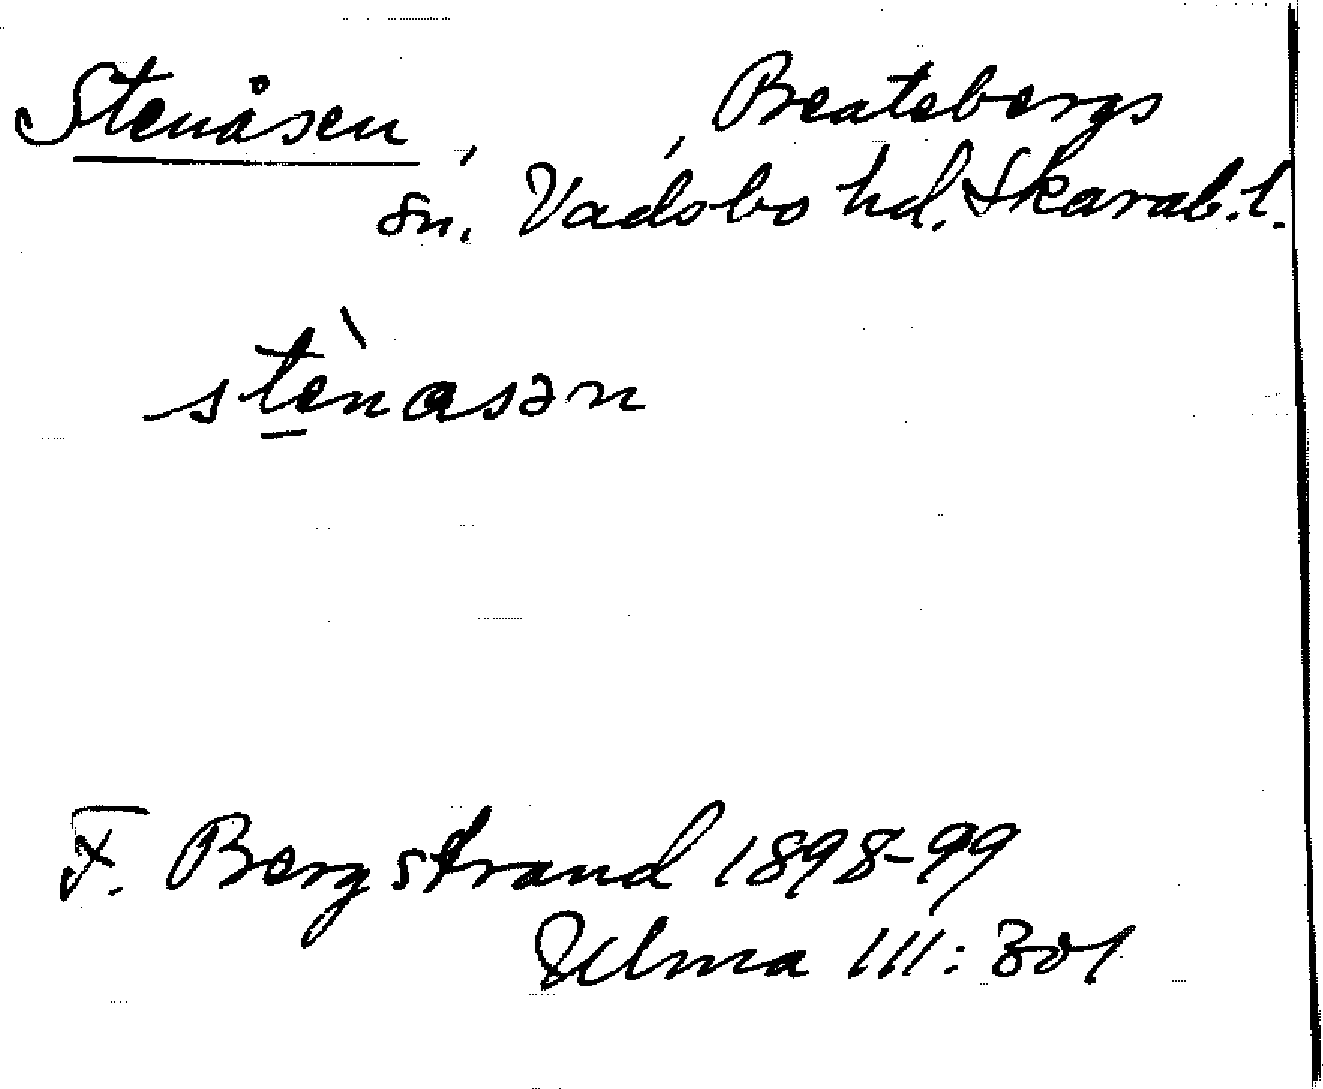 Stenåsen, , Beatebergs
sn. Vadsbo hd. Skarab. l.
stè̠nasən
F. Bergstrand 1898-99
Ulma 111:301